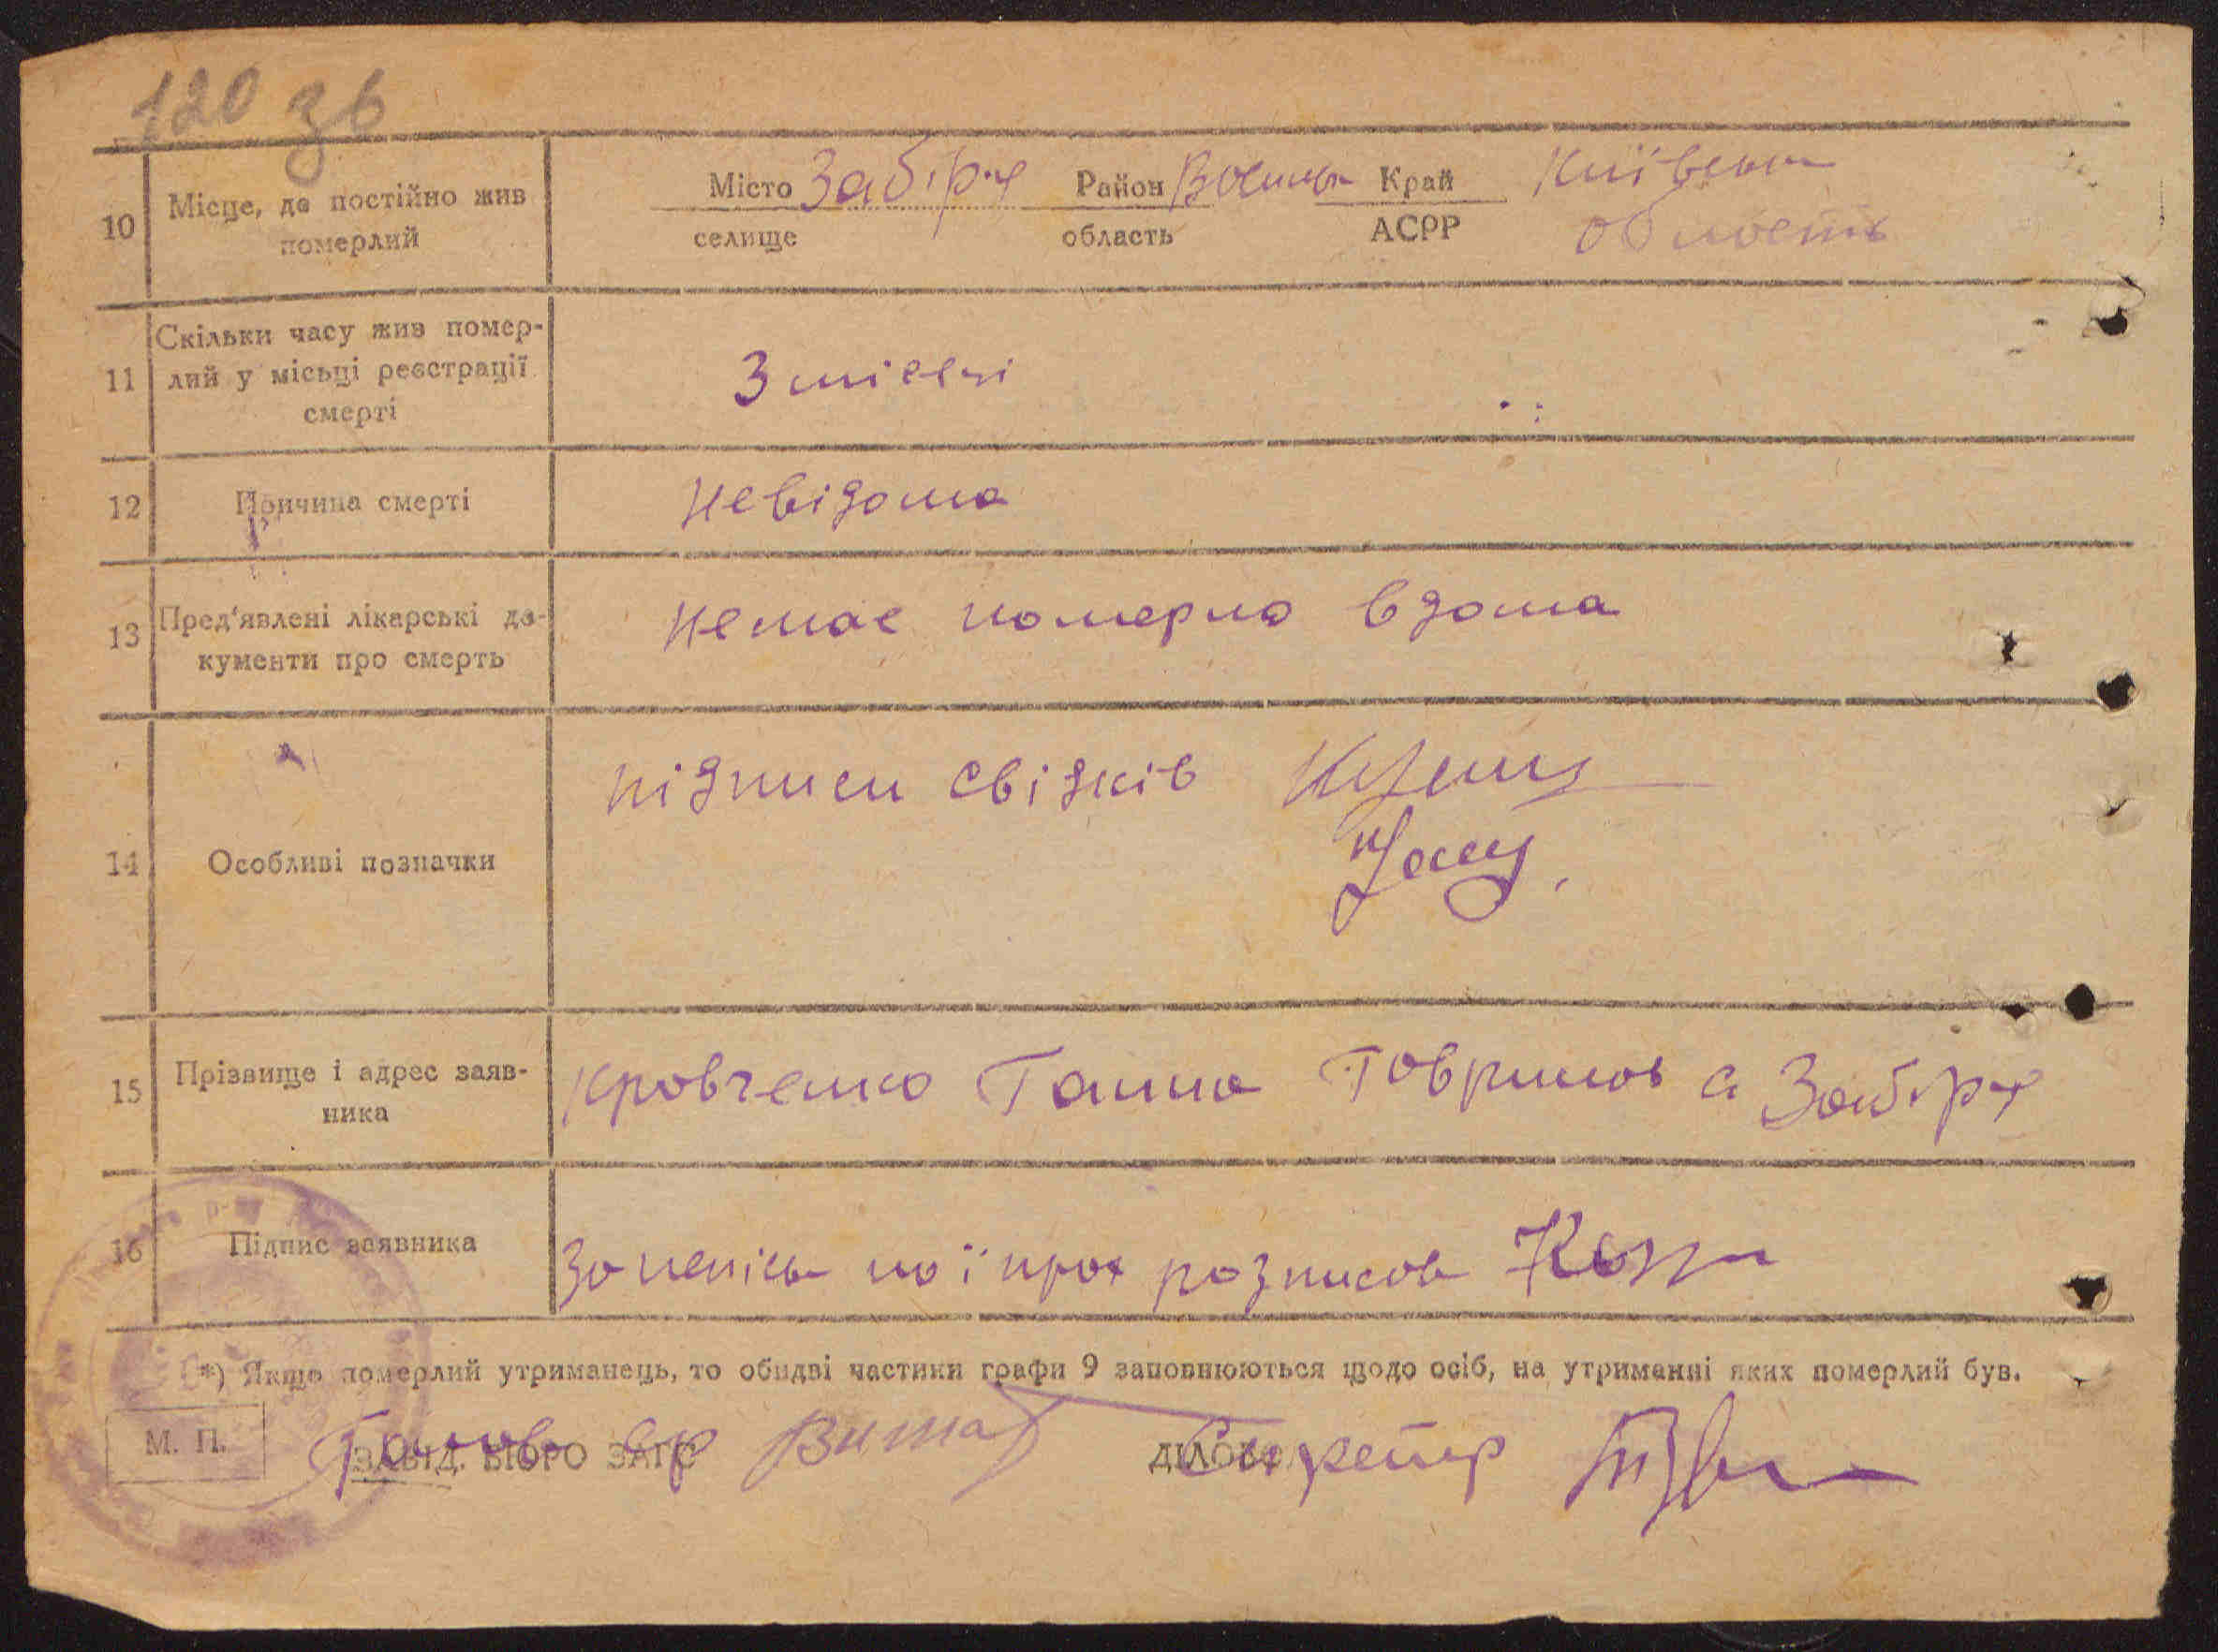 120 зв
10 Місце, де постійно жив померлий
Місто Забір'я Район Край Київська
селище область АСРР область
11 Скільки часу жив помер-
лий у місьці реєстрації
смерті
3 місяці
12 Причина смерті Невідома
13 Пред'явлені лікарські до-
кументи про смерть
Немає померла вдома
14 Особливі позначки
підписи свідків
15 Прізвище і адрес заяв-
ника
Кровченко Ганна с Забір'я
16 Підпис заявника
розписов
*) Якщо померлий утриманець, то обидві частини графи 9 заповнюються щодо осіб, на утриманні яких померлий був.
М. П. ЗАВІД. БЮРО ЗАГС Голова с/р ДІЛОВОД Сикретар